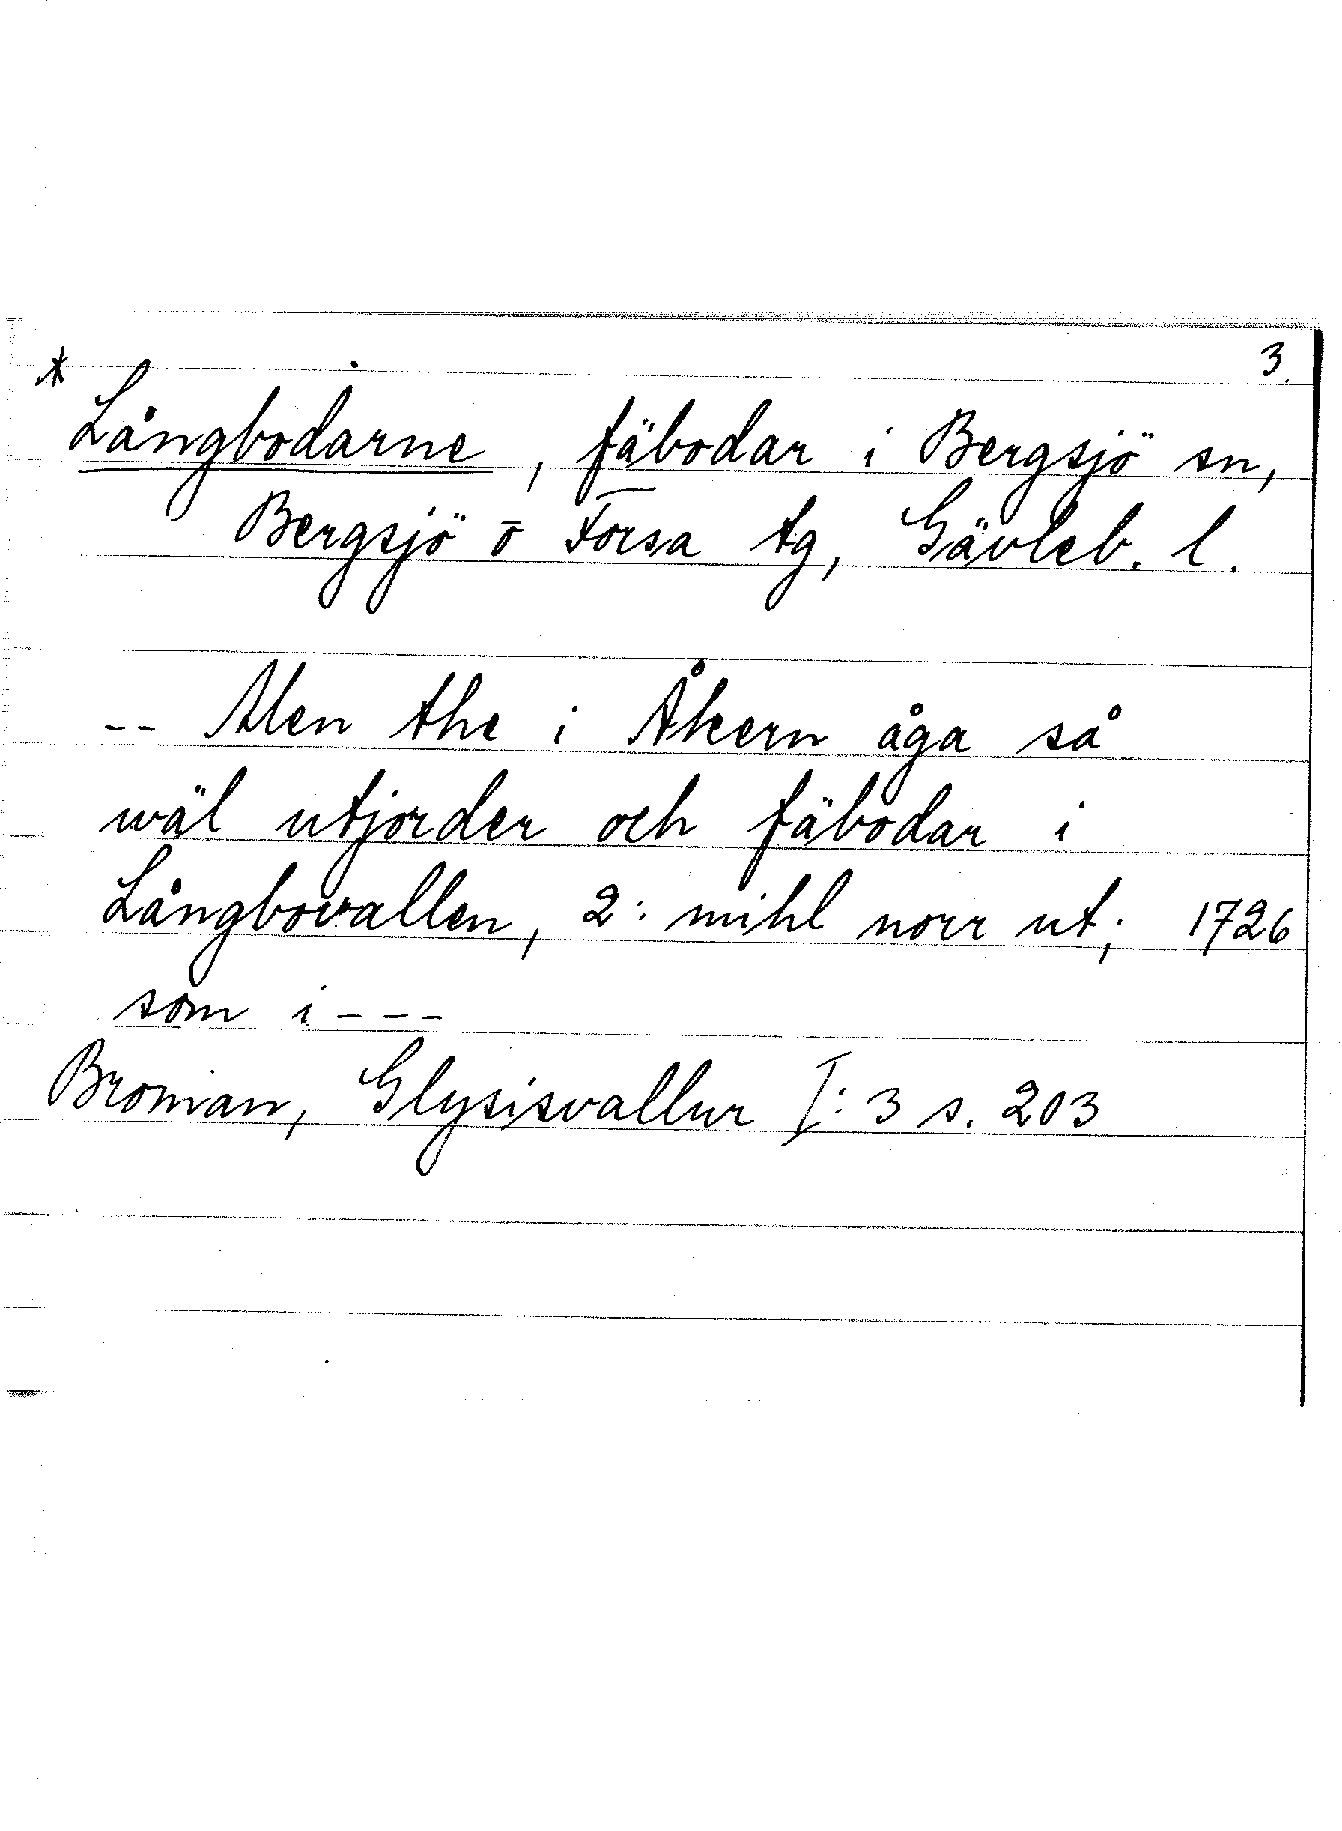 * 3.
Långbodarne, fäbodar i Bergsjö sn,
Bergsjö o Forsa tg, Gävleb. l.
-- Men the i Åkern åga så
wäl utjorder och fäbodar i
Långbovallen, 2: mihl norr ut; 1726
som i ---
Broman, Glysisvallur I: 3 s. 203